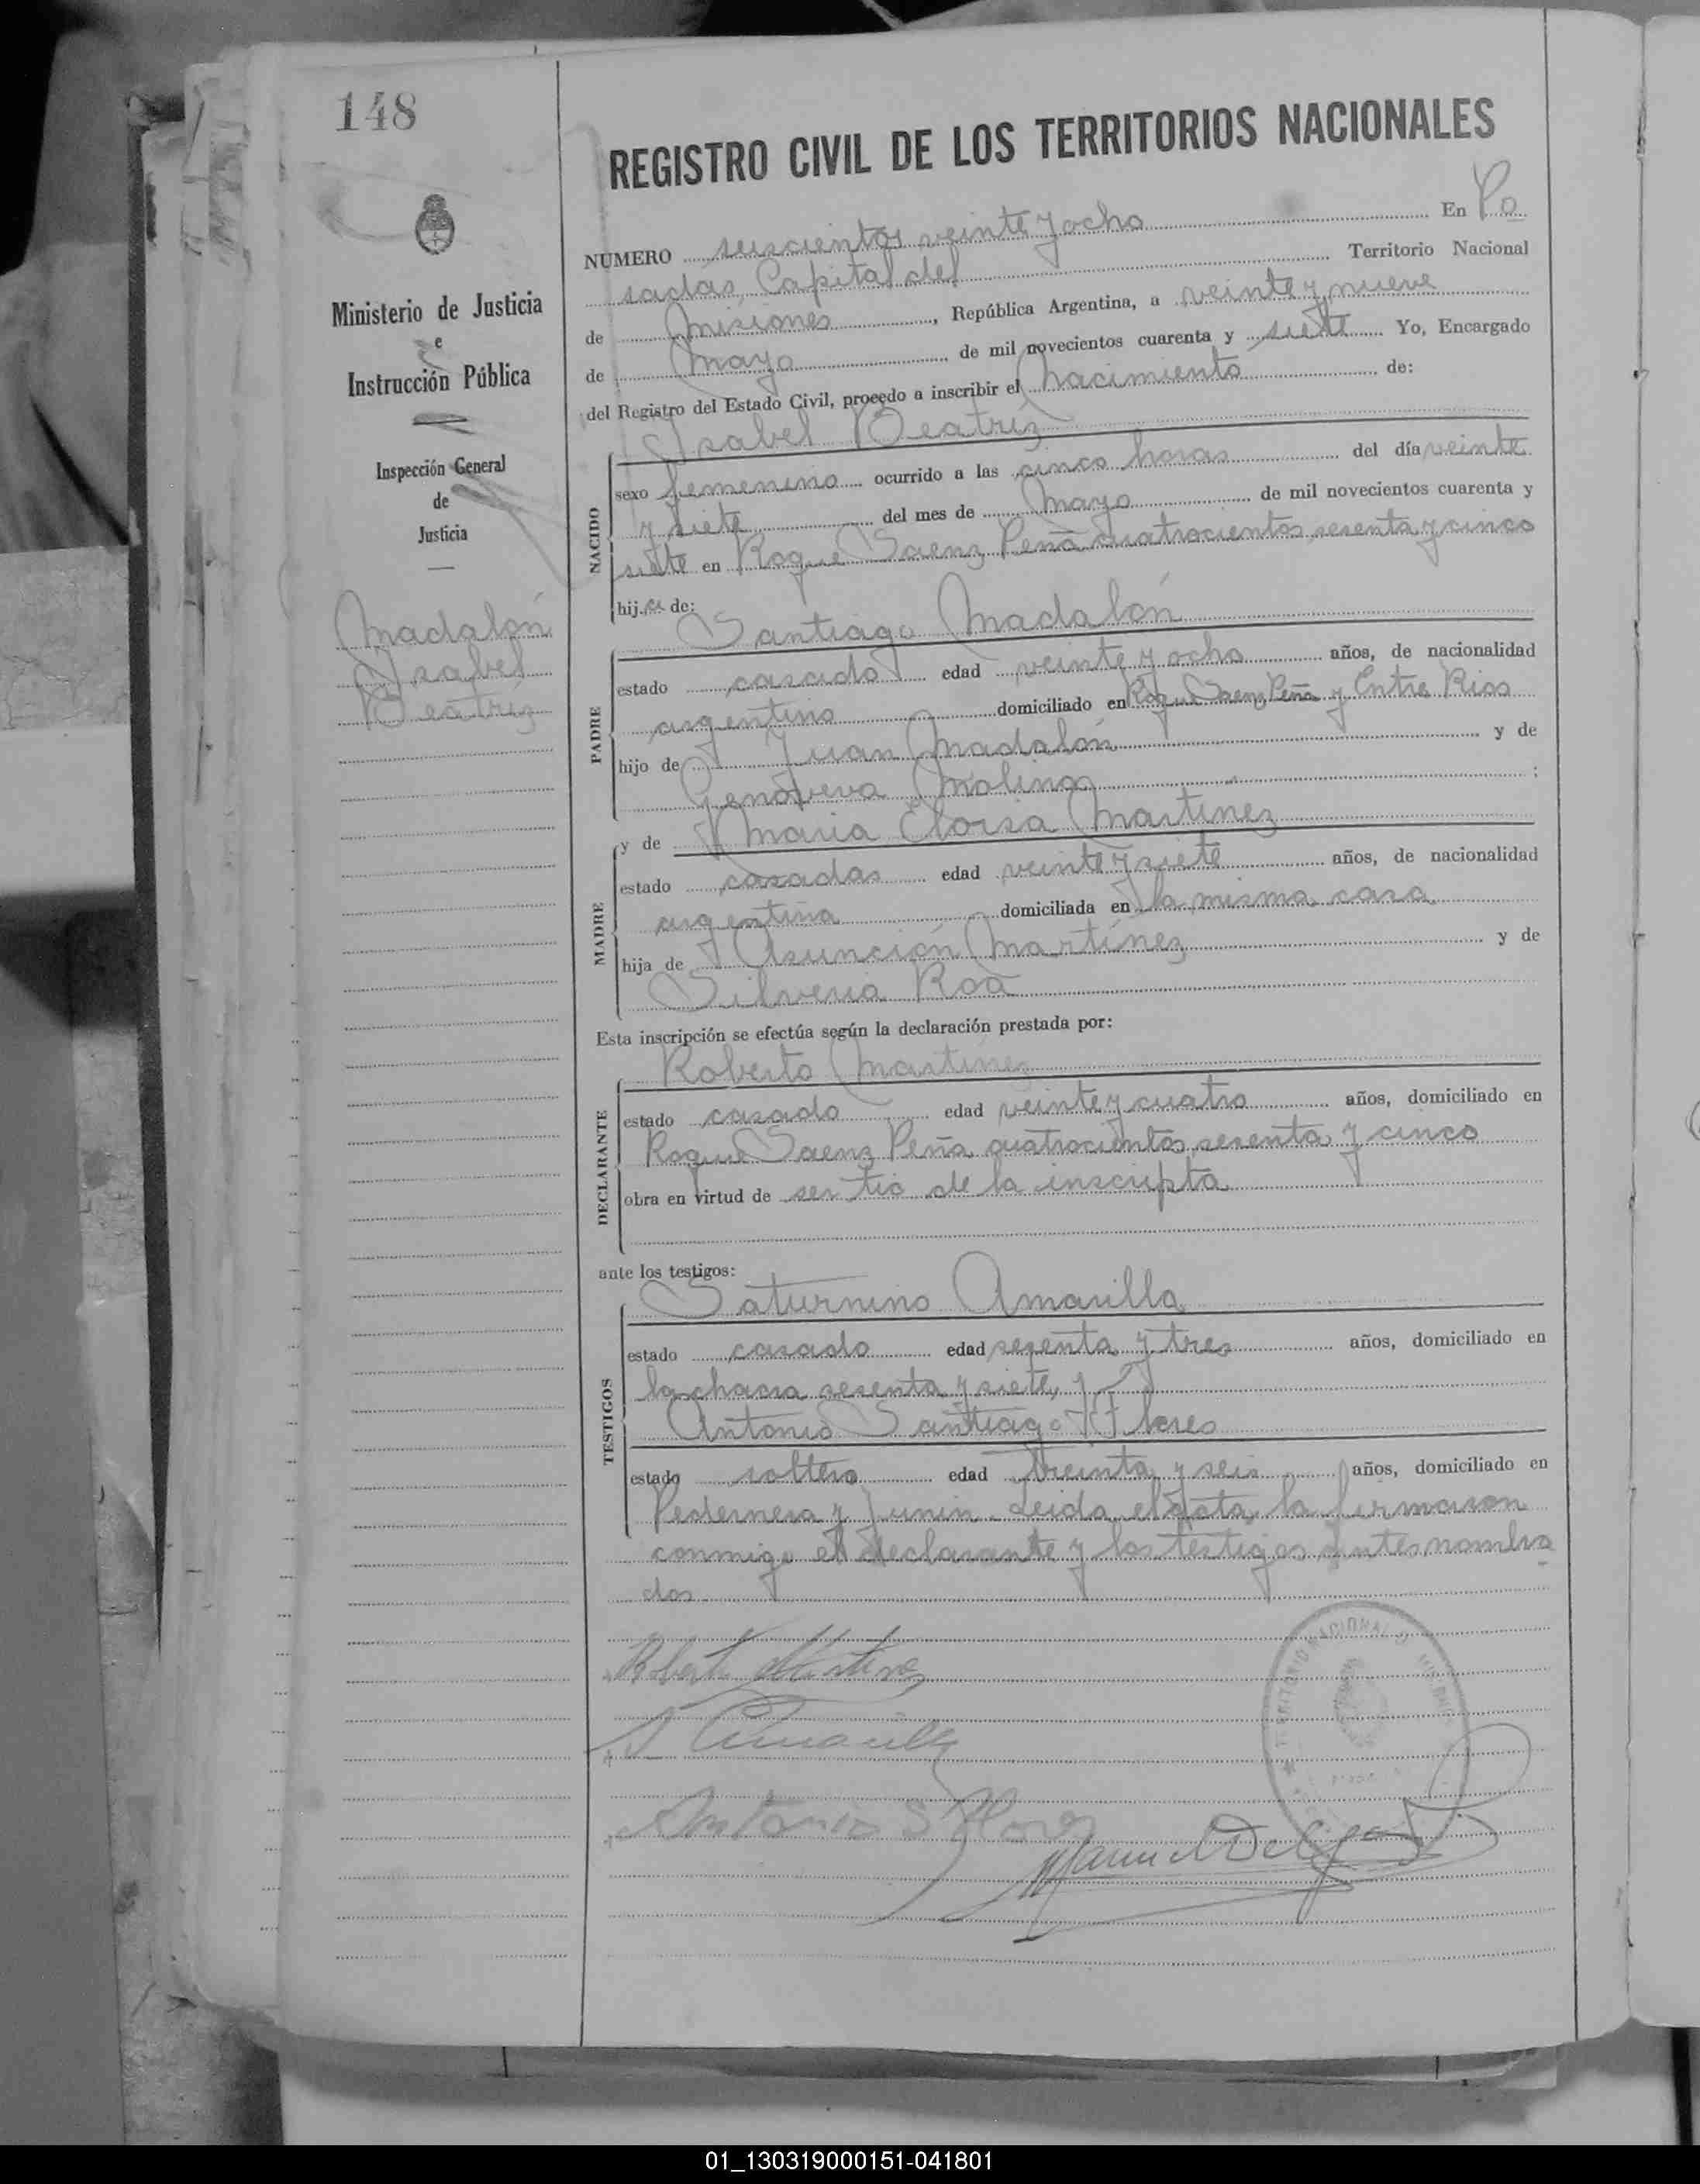 148
REGISTRO CIVIL DE LOS TERRITORIOS NACIONALES
Ministerio de Justicia
e
Instrucción Pública
Inspección General
de
Justicia
Madalón
Isabel
Beatriz
NUMERO seiscientos veinte y ocho En Po
sadas, Capital del Territorio Nacional
de Misiones, República Argentina, a veinte y nueve
de Mayo de mil novecientos cuarenta y siete Yo, Encargado
del Registro del Estado Civil, procedo a inscribir el nacimiento de:
Isabel Beatriz
NACIDO
sexo femenino ocurrido a las cinco horas del día veinte
y siete del mes de Mayo de mil novecientos cuarenta y
siete en Roque Saenz Peña cuatrocientos sesenta y cinco
hija de:
Santiago Madalón
PADRE
estado casado edad veinte y ocho años, de nacionalidad
argentino domiciliado en Roque Saenz Peña y Entre Rios
hijo de Juan Madalón y de
Genoveva Molinas ;
y de Maria Eloisa Martinez
MADRE
estado casadas edad veinte y siete años, de nacionalidad
argentina domiciliada en la misma casa
hija de Asunción Martínez y de
Silveria Roa
Esta inscripción se efectúa según la declaración prestada por:
Roberto Martinez
DECLARANTE
estado casado edad veinte y cuatro años, domiciliado en
Roque Saenz Peña cuatrocientos sesenta y cinco
obra en virtud de ser tio de la inscripta
ante los testigos:
Saturnino Amarilla
TESTIGOS
estado casado edad sesenta y tres años, domiciliado en
la chacra sesenta y siete, y
Antonio Santiago Flores
estado soltero edad treinta y seis años, domiciliado en
Pedernera y Junin. Leida el acta, la firmaron
conmigo el declarante y los testigos antes nombra
dos
Roberto Martinez
S Amarilla
Antonio S Flores
Manuel Delgado
TERRITORIO NACIONAL D MISIONES
01_130319000151-041801